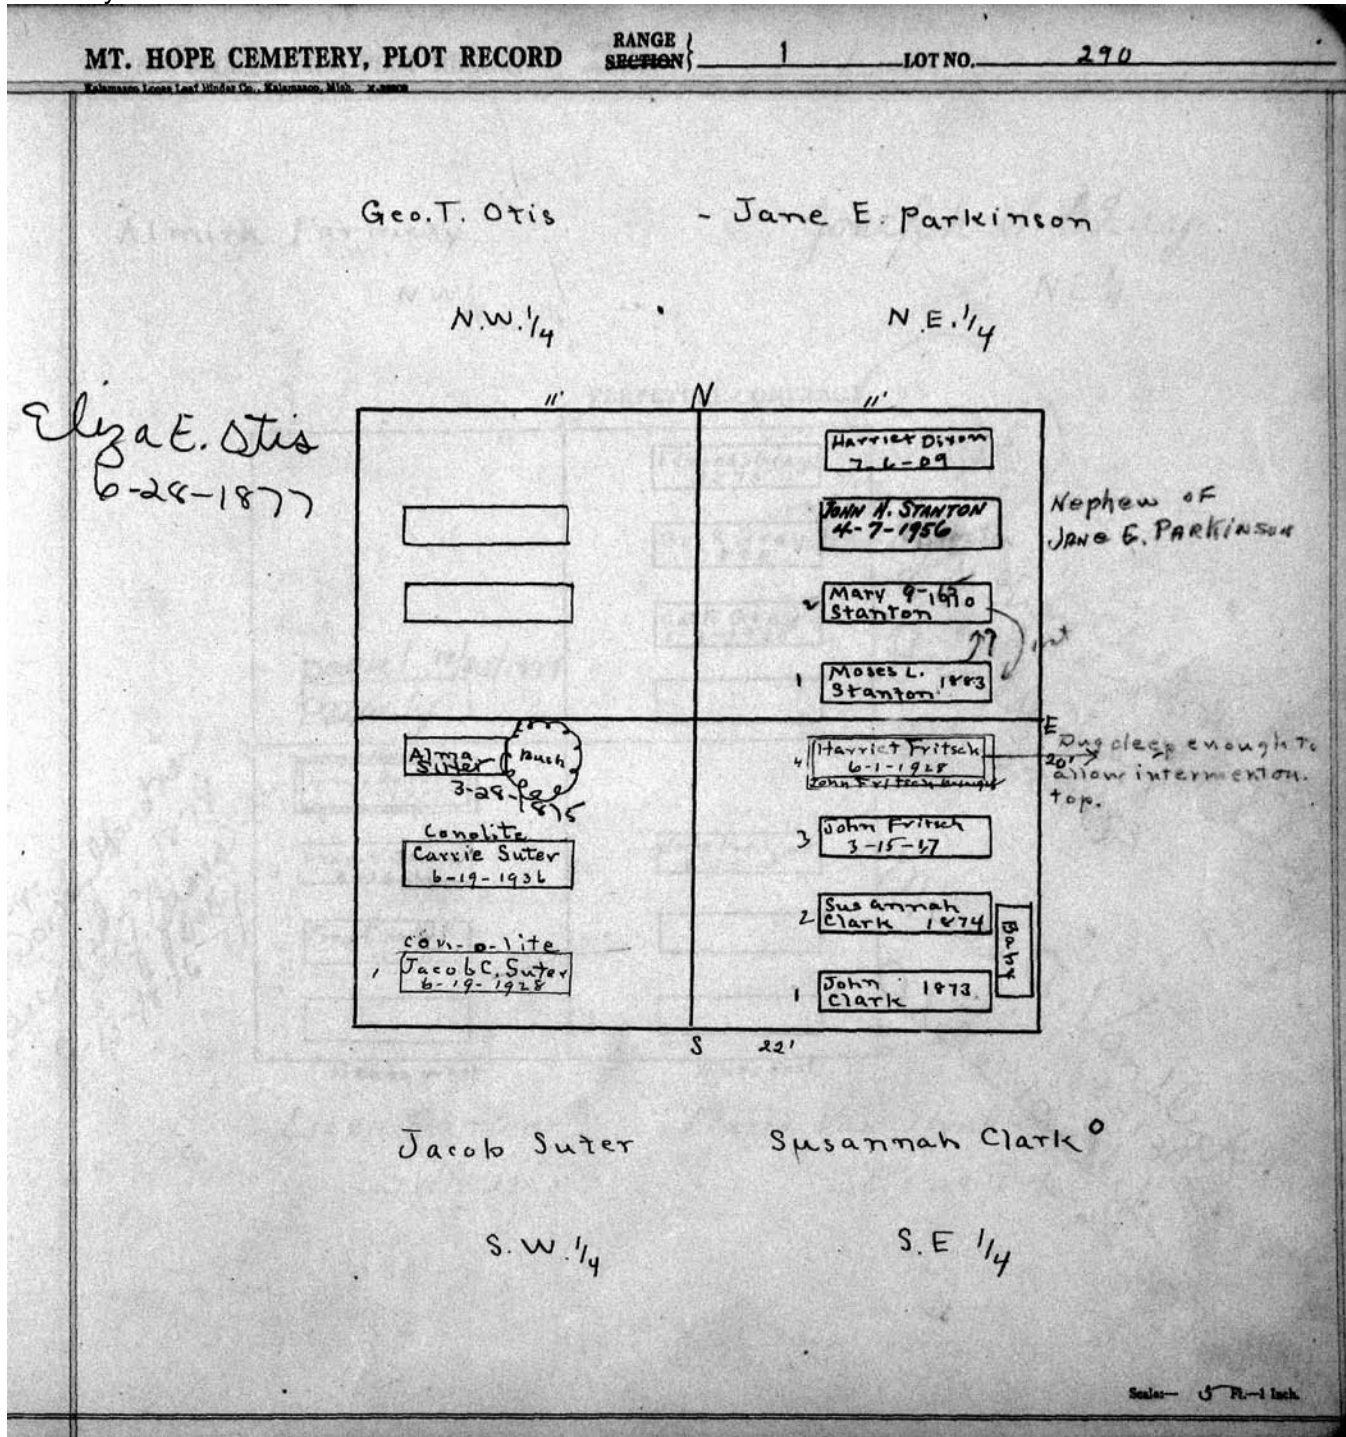 MT. HOPE CEMETERY, PLOT RECORD RANGE SECTION 1 LOT NO. 290
Kalamazoo Loose Leaf Binder Co., Kalamazoo, Mich.
Geo. T. Otis - Jane E. Parkinson
N.W. 1/4 N.E. 1/4
Eliza E. Otis
6-28-1877
11' N 11'
Harriet Dixon
7-6-09
JOHN H. STANTON
4-7-1956
Nephew of
JANE E. PARKINSON
2 Mary 9-16-1910
Stanton
1 Moses L. 1883
Stanton
E
20'
Alma
Suter
Bush
3-28-1875
4 Harriet Fritsch
6-1-1928
John Fritsch
Dug deep enough to
allow interment on
top.
Conolite
Carrie Suter
6-19-1936
3 John Fritsch
3-15-17
2 Susannah
Clark 1874
Baby
Con-o-lite
1 Jacob C. Suter
6-19-1928
1 John 1873
Clark
S 22'
Jacob Suter Susannah Clark
S.W. 1/4 S.E 1/4
Scale:— 5 Ft.—1 Inch.